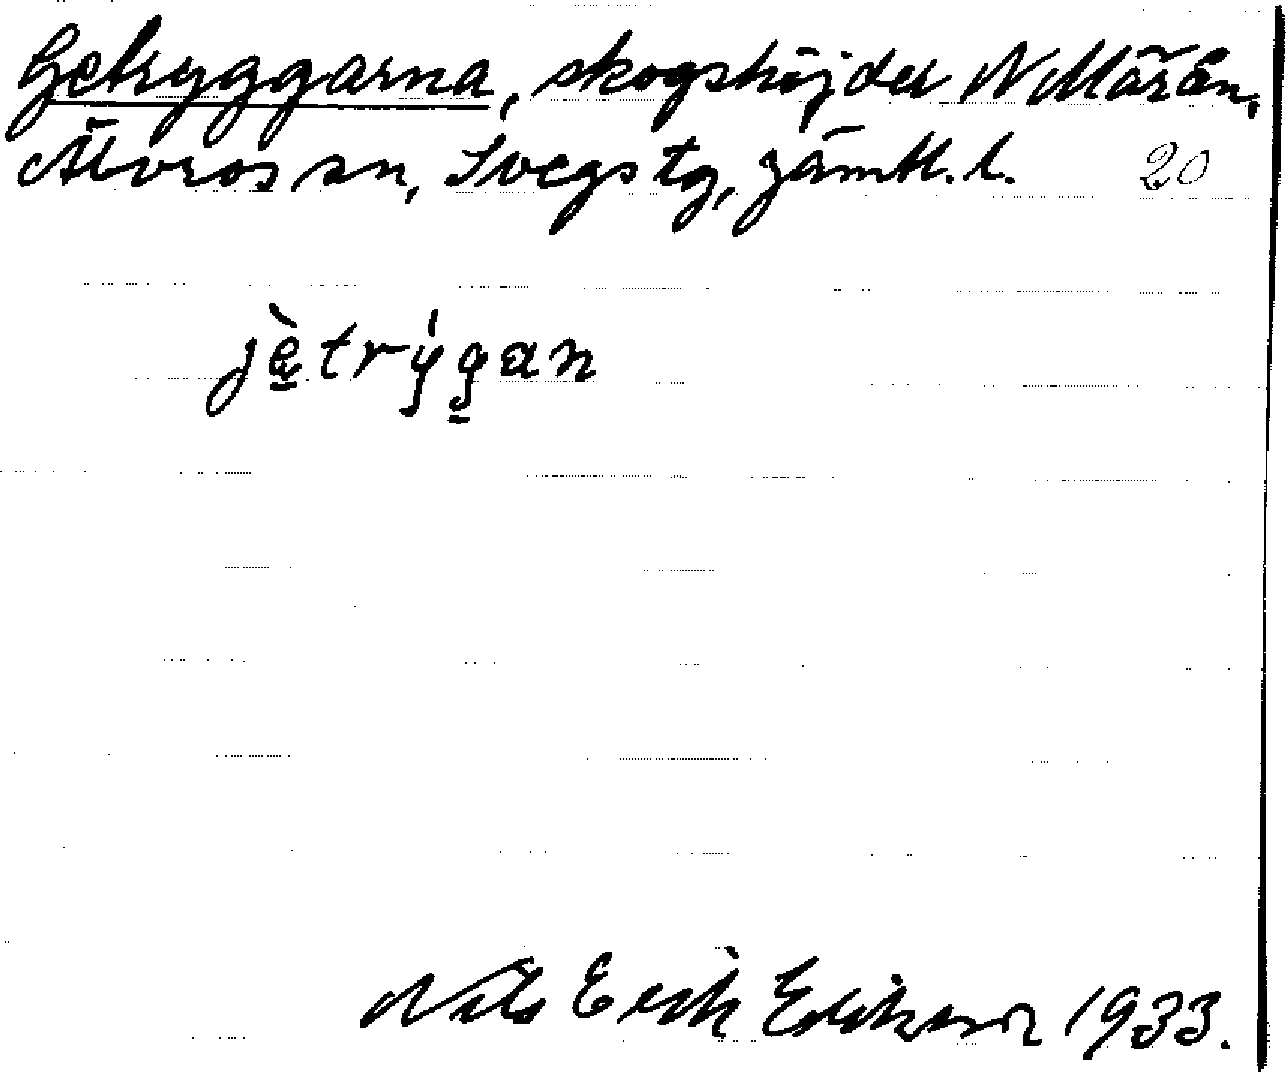 Getryggarna, skogshöjder N Märån,
Älvros sn, Svegs tg, Jämtl. l. 20
jè̱trýg̱an
Nils Erik Eriksson 1933.